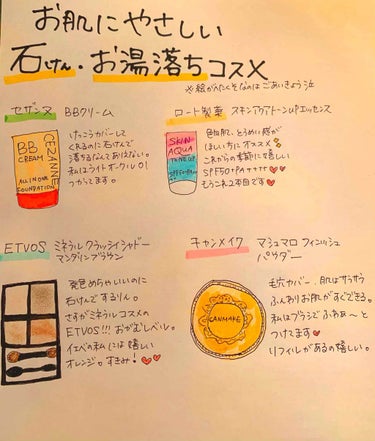 お肌にやさしい
石けん・お湯落ちコスメ
※絵がへたくそなのはごあいきょう泣
セザンヌ BBクリーム
BB
CREAM
CEZANNE
ALL IN ONE
FOUNDATION
けっこうカバーして
くれるのに石けんで
落ちるなんてあなどれない。
私はライトオークル01
つかってます。
ロート製薬 スキンアクアトーンUPエッセンス
SKIN
AQUA
TONE UP
SPF50+PA++++
色白肌、とうめいに感が
ほしい方にオススメ
これからの季節に嬉しい
SPF50+PA++++
もうこれ2本目です
ETVOS ミネラルクラッシィシャドー
マンダリンブラウン
発色めちゃいいのに
石けんでするりん。
さすがミネラルコスメの
ETVOS!!! おがむレベル。
イエベの私には嬉しい
オレンジ。すきみ!
キャンメイク マシュマロフィニッシュ
パウダー
CANMAKE
毛穴カバー、肌はサラサラ
ふんわりお肌がすぐできる。
私はブラシでふわぁ〜と
つけてます
リフィルがあるの嬉しい。